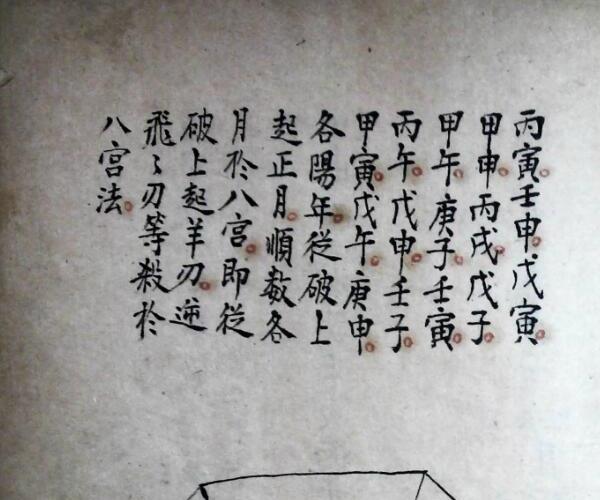 丙寅壬申戊寅
甲申丙戌戊子
甲午庚子壬寅
丙午戊申壬子
甲寅戊午庚申
各陽年從破上
起正月順數各
月於八宮即從
破上起羊刃逆
飛〻刃等殺於
八宮法